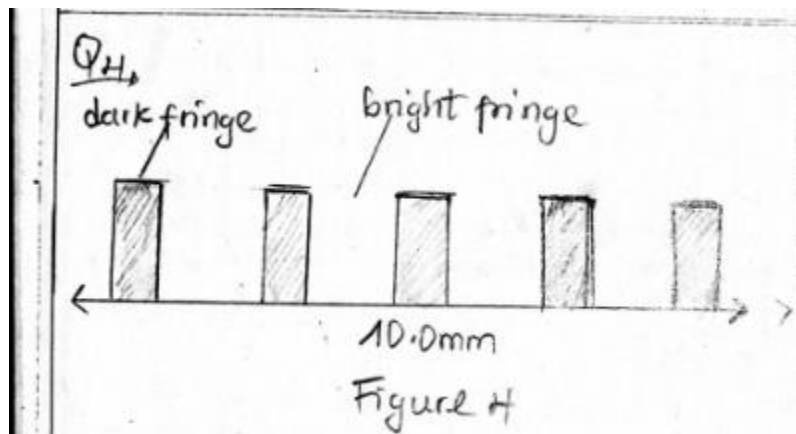 Q4,
dark fringe
bright fringe
10.0mm
Figure 4